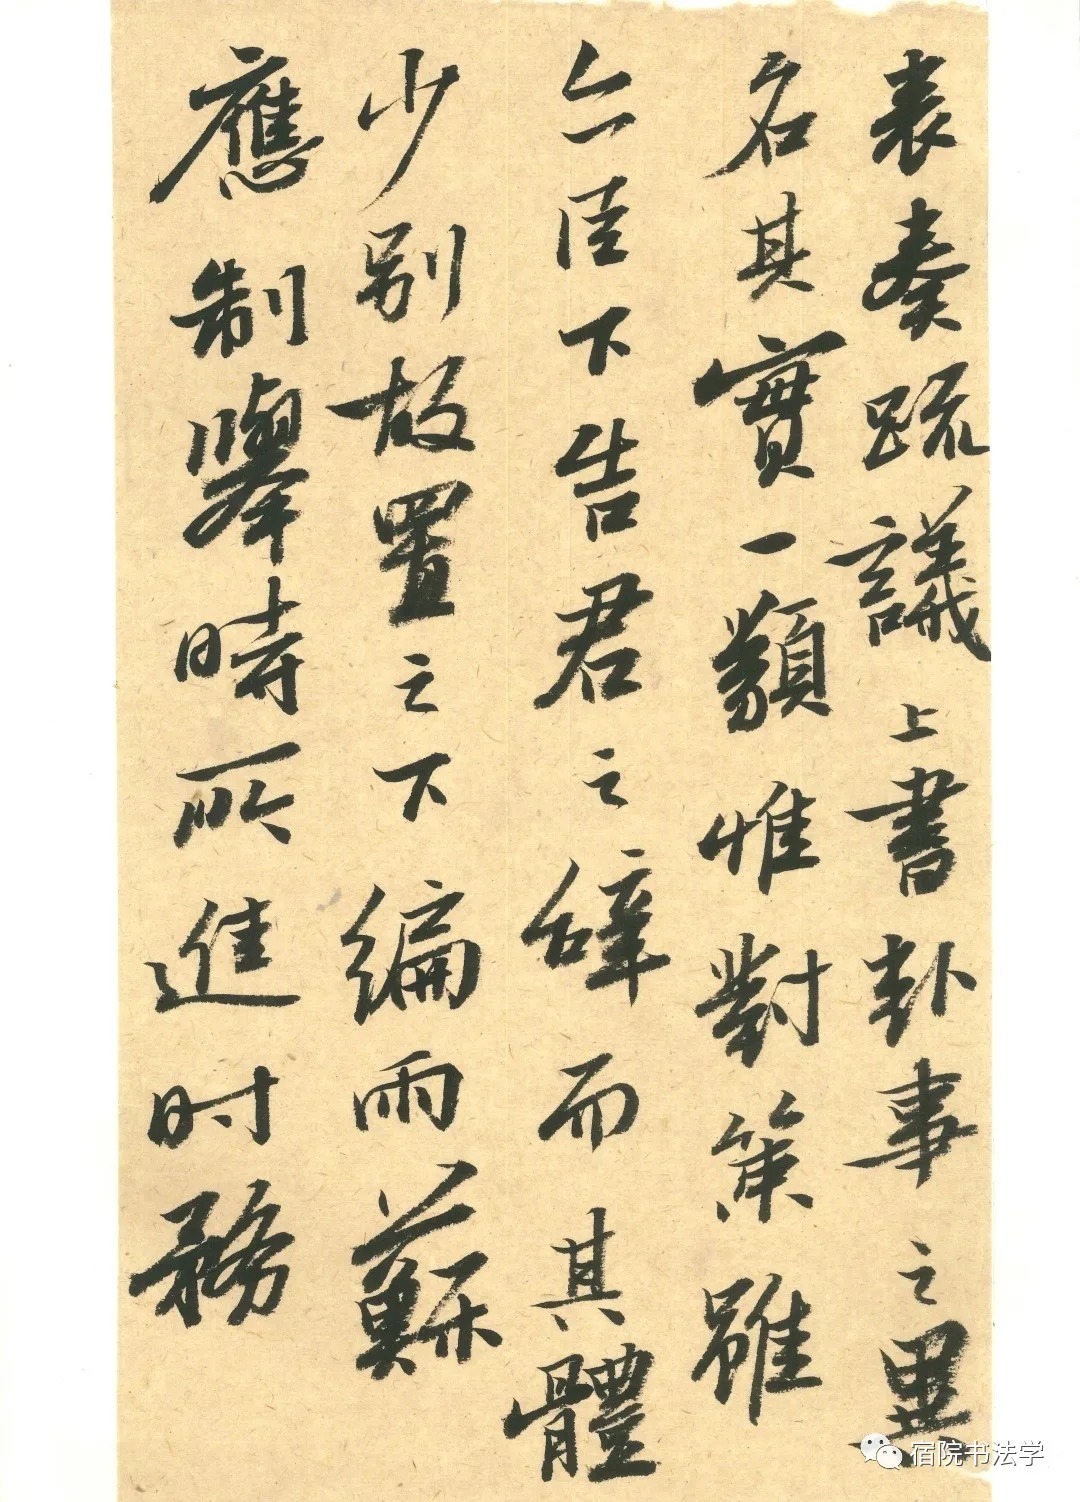 表奏疏議上書封事之異
名其實一類惟對策雖
亦臣下告君之辭而其體
少別故置之下編兩蘇
應制舉時所進时務
宿院书法学